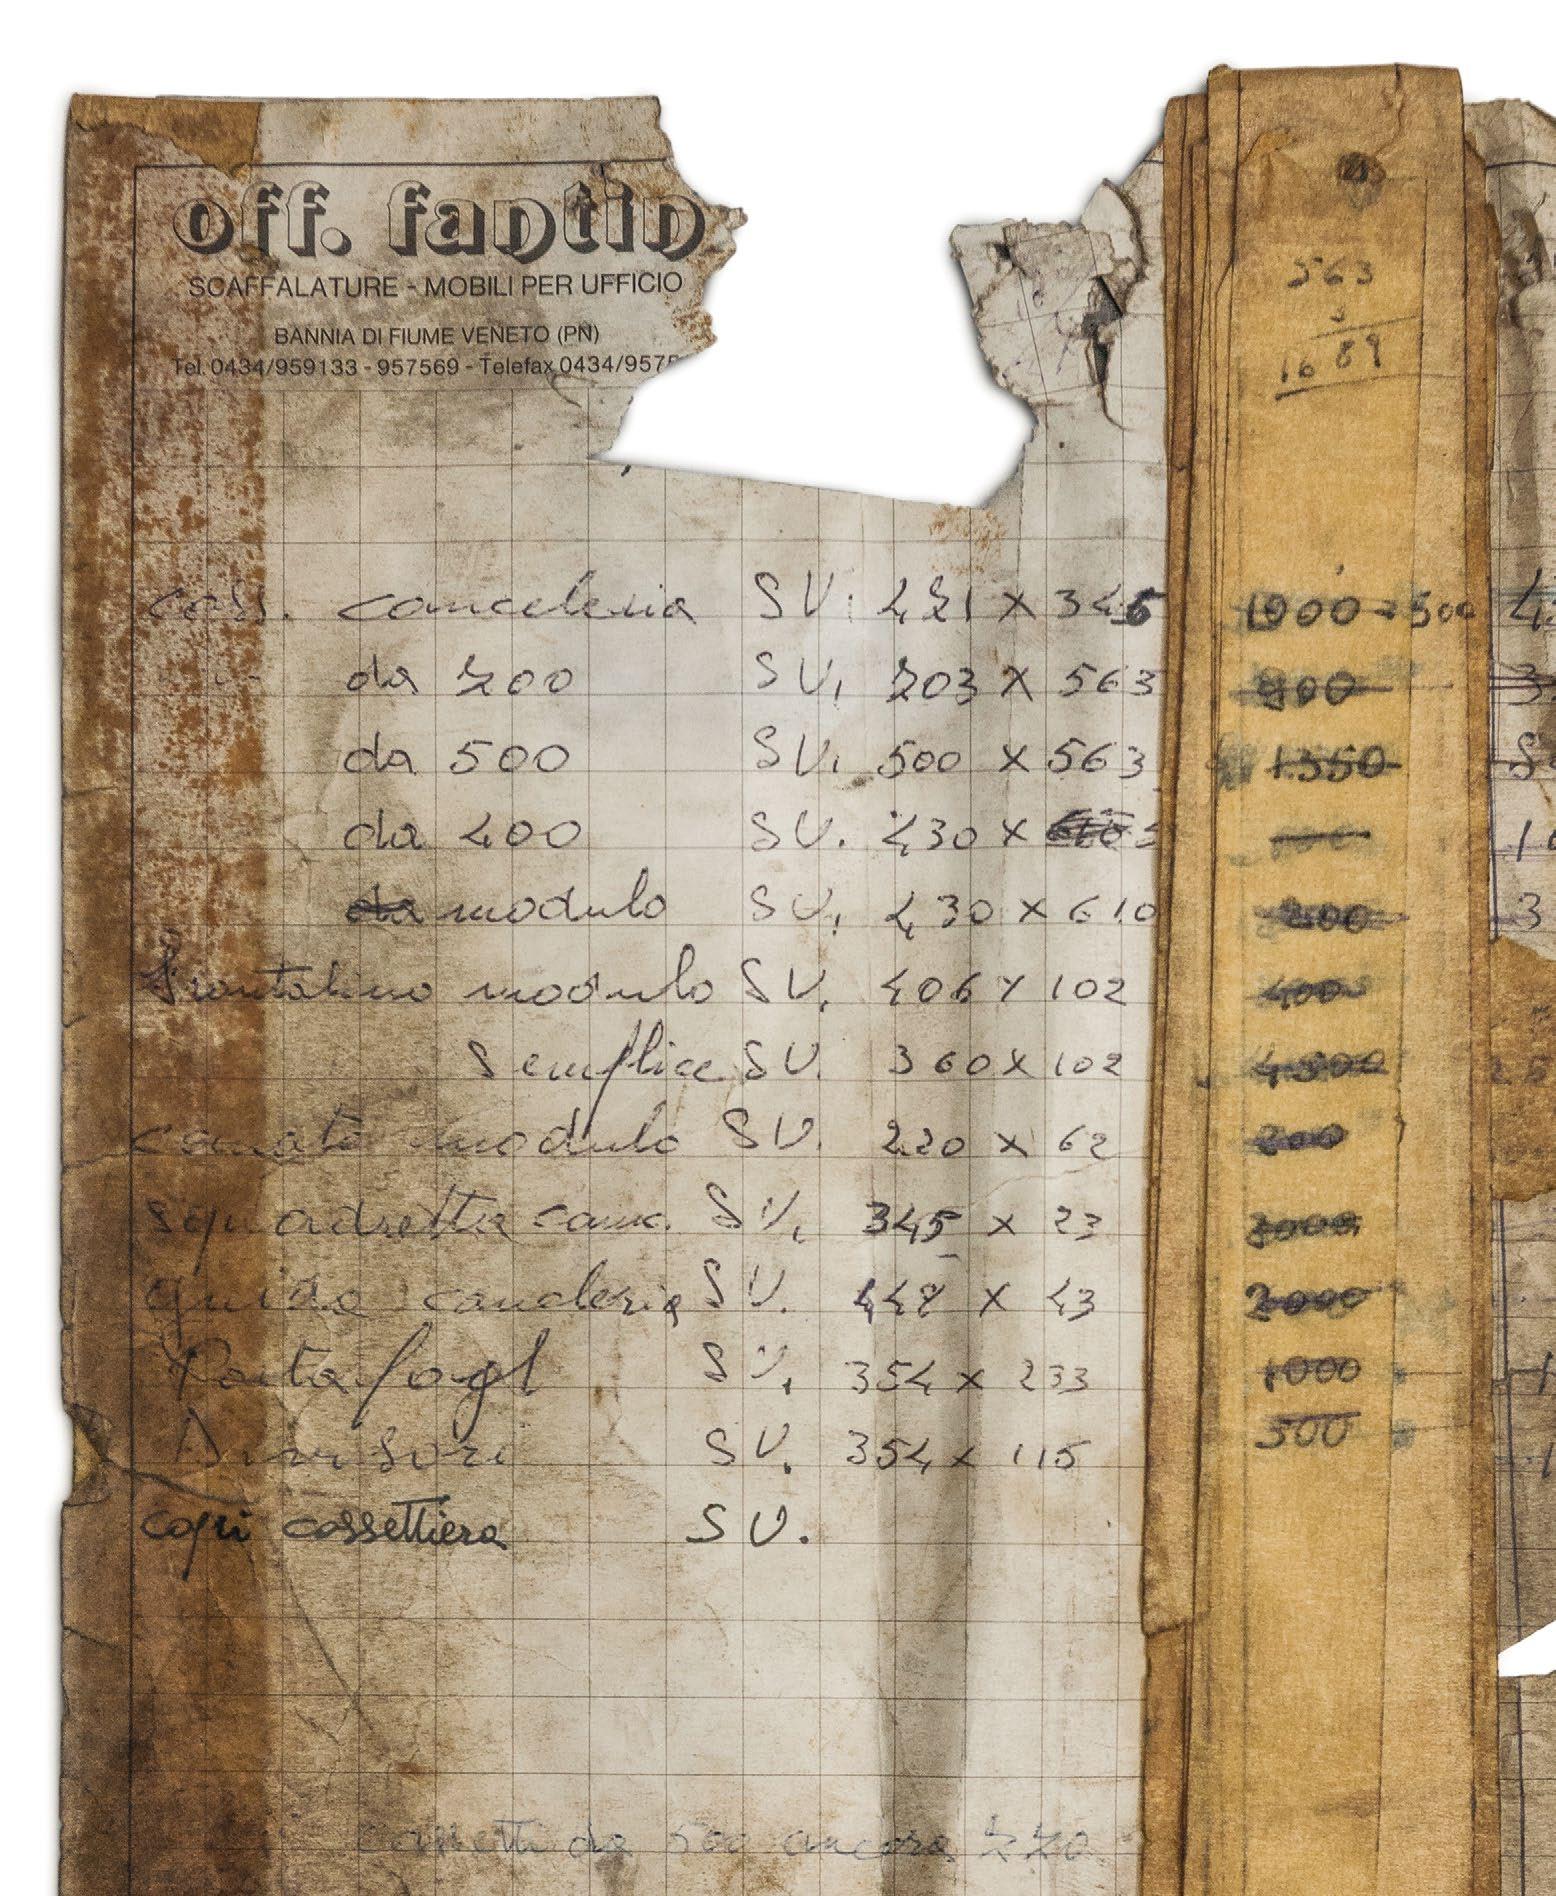 off. fantin
SCAFFALATURE - MOBILI PER UFFICIO
BANNIA DI FIUME VENETO (PN)
Tel. 0434/959133 - 957569 - Telefax 0434/9575
563
3
1689
cass. canceleria SV. 421 x 345 1000 + 500
da 200 SV. 203 x 563 900
da 500 SV. 500 x 563 1350
da 400 SV. 430 x
da modulo SV. 430 x 610 200
frontalino modulo SV. 406 x 102 400
semplice SV. 360 x 102 4300
modulo SV. 220 x 62 200
squadretta canc. SV. 345 x 23 3000
guide canceleria SV. 448 x 43 2000
Porta fogl SV. 354 x 233 1000
Divisori SV. 354 x 115 500
copri cassettiera SV.
cassetti da 500 ancora 220